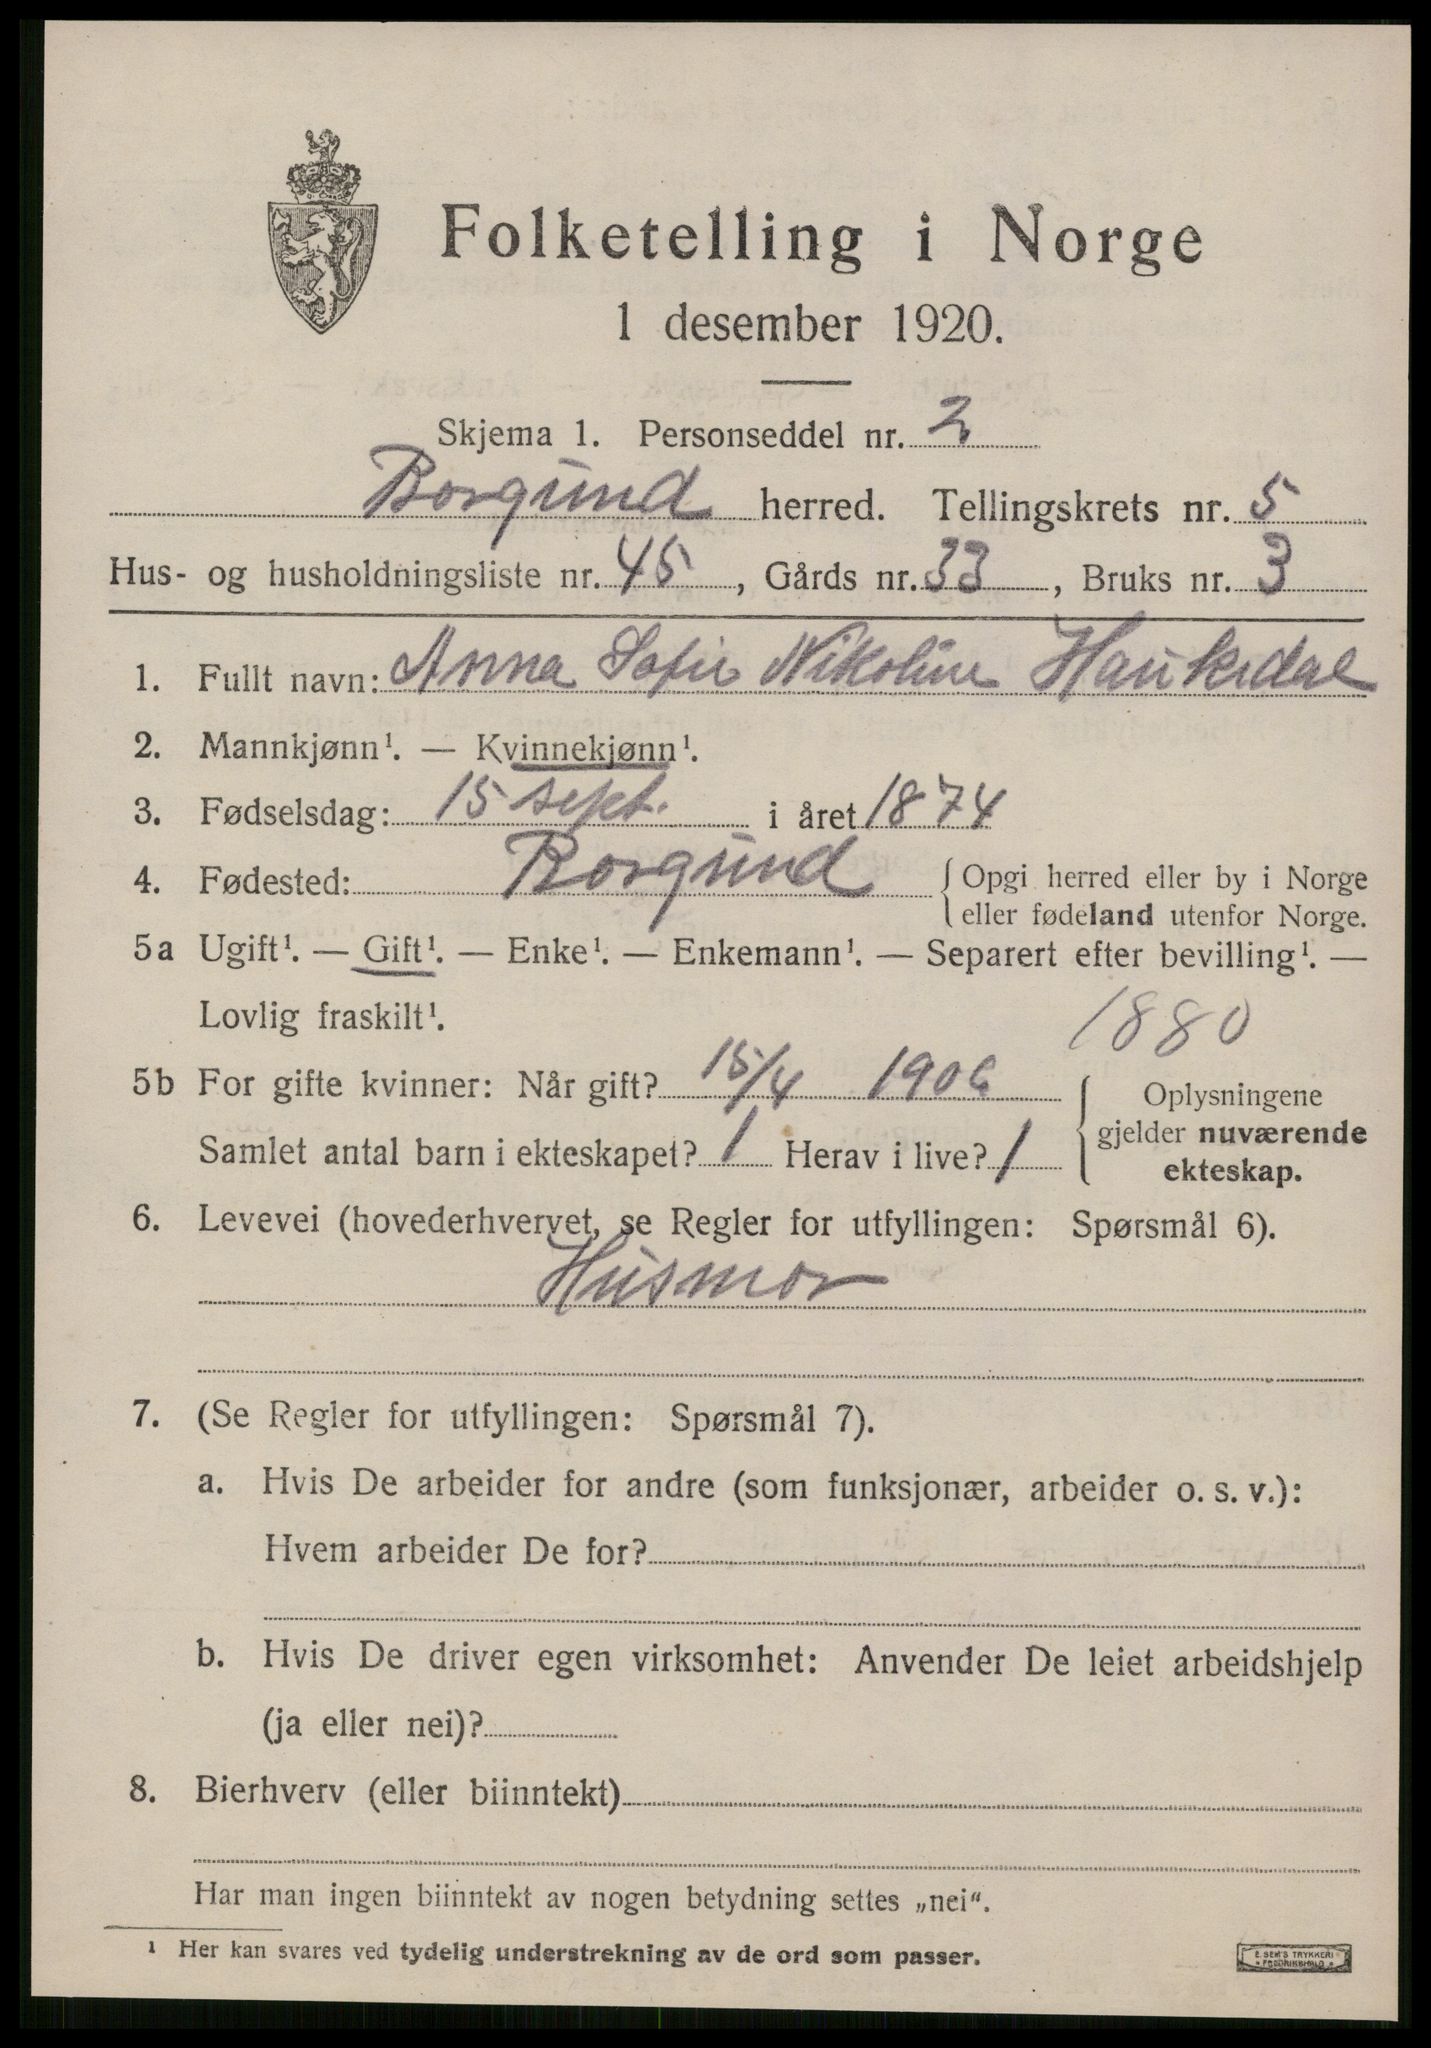 Folketelling i Norge
1 desember 1920.
Skjema 1. Personseddel nr. 2
Borgund herred. Tellingskrets nr. 5
Hus- og husholdningsliste nr. 45, Gårds nr. 33, Bruks nr. 3
1. Fullt navn: Anna Sofie Nikoline Haukedal
2. Mannkjønn¹. — Kvinnekjønn¹.
3. Fødselsdag: 15 sept. i året 1874
4. Fødested: Borgund { Opgi herred eller by i Norge
eller fødeland utenfor Norge.
5a Ugift¹. — Gift¹. — Enke¹. — Enkemann¹. — Separert efter bevilling¹. —
Lovlig fraskilt¹. 1880
5b For gifte kvinner: Når gift? 15/4 1906 { Oplysningene
gjelder nuværende
Samlet antal barn i ekteskapet? 1 Herav i live? 1 ekteskap.
6. Levevei (hovederhvervet, se Regler for utfyllingen: Spørsmål 6).
Husmor
7. (Se Regler for utfyllingen: Spørsmål 7).
a. Hvis De arbeider for andre (som funksjonær, arbeider o. s. v.):
Hvem arbeider De for?
b. Hvis De driver egen virksomhet: Anvender De leiet arbeidshjelp
(ja eller nei)?
8. Bierhverv (eller biinntekt)
Har man ingen biinntekt av nogen betydning settes „nei“.
¹ Her kan svares ved tydelig understrekning av de ord som passer.
E. SEM'S TRYKKERI
FREDRIKSHALD